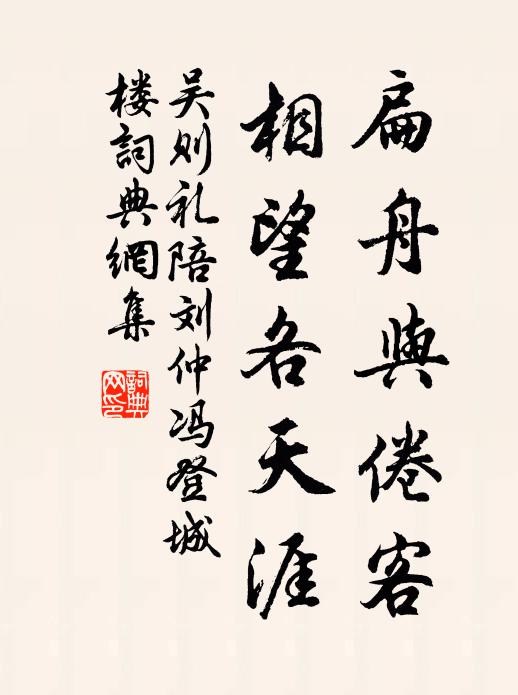 扁舟與倦客
相望各天涯
吴则礼陪刘仲冯登城
楼詞典網集
詞典網印